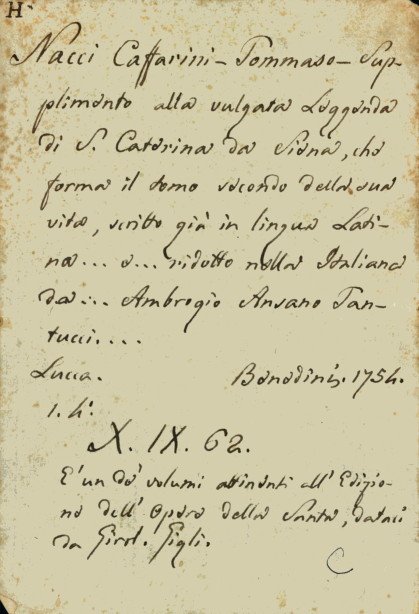 H
Nacci Caffarini - Tommaso - Sup-
plimento alla vulgata Leggenda
di S. Caterina da Siena, che
forma il tomo secondo della sua
vita, scritto già in lingua Lati-
na ... e ... ridotto nella Italiana
da ... Ambrogio Ansano Tan-
tucci....
Lucca. Benedini. 1754.
1. 4.
X. IX. 62.
E' un de' volumi attinenti all' Edizio-
ne dell' Opere della Santa, dataci
da Girol. Gigli.
C